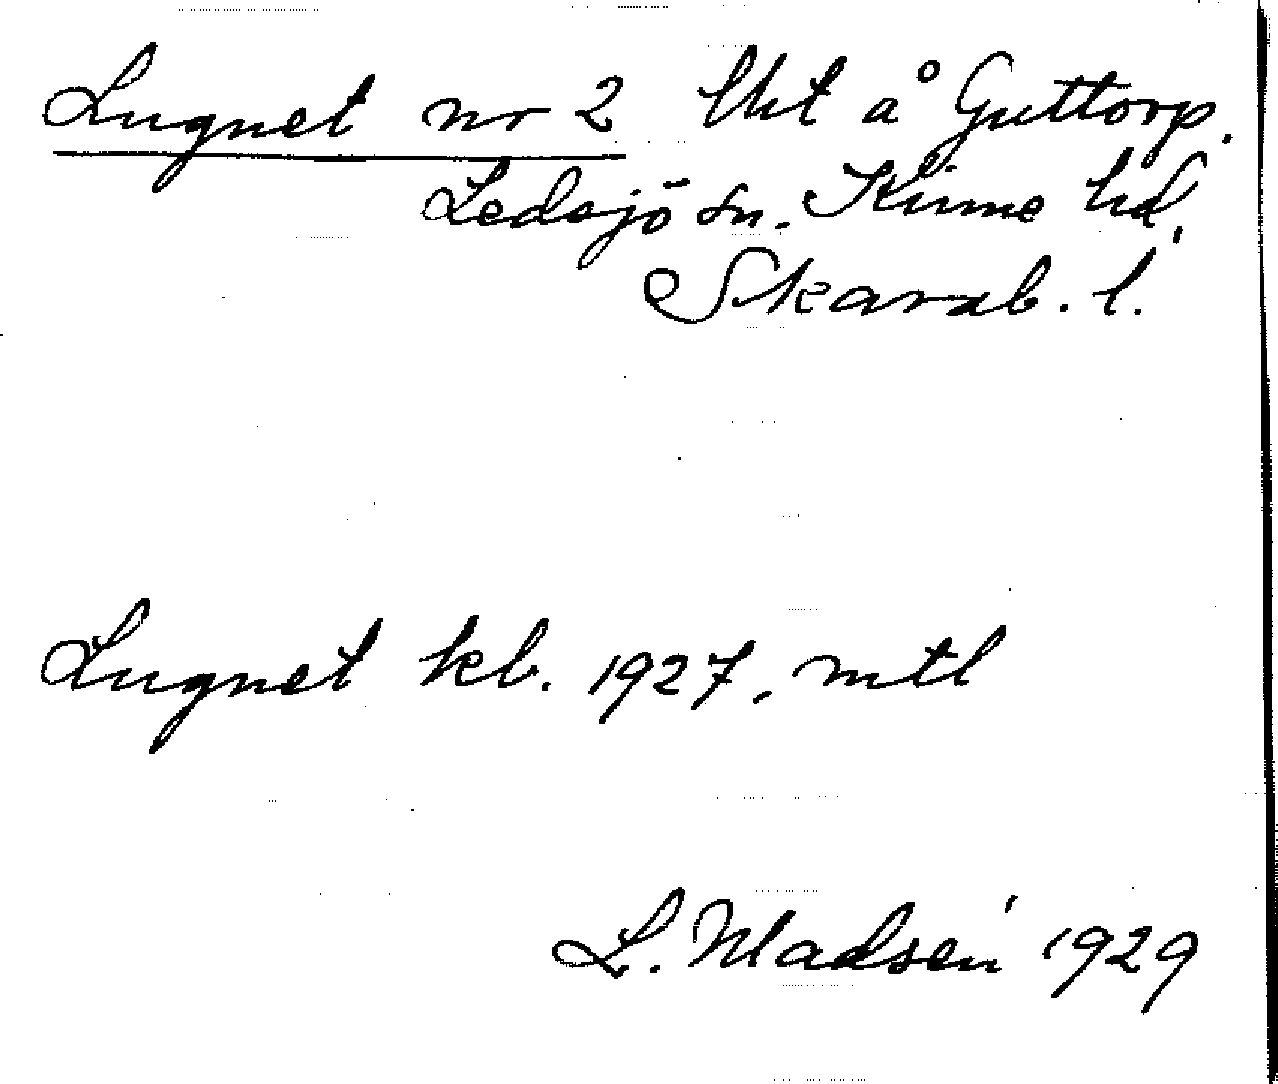 Lugnet nr 2 lht å Guttorp.
Ledsjö sn. Kinne hd,
Skarab. l.
Lugnet kb. 1927, mtl
L. Madsén 1929